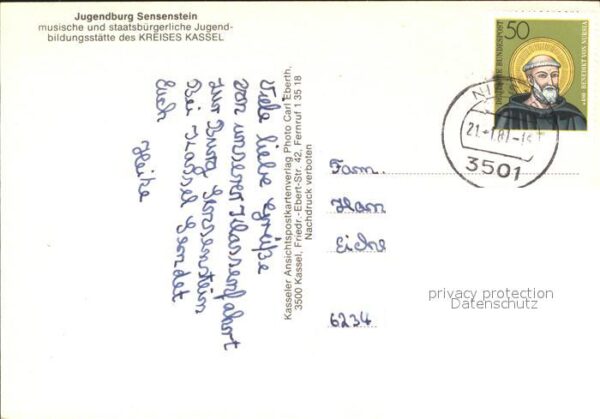 Jugendburg Sensenstein
musische und staatsbürgerliche Jugend-
bildungsstätte des KREISES KASSEL
Viele liebe Grüße
von unserer Klassenfahrt
zur Burg Senssenstein
bei Kassel sendet
Euch
Heike
Kasseler Ansichtspostkartenverlag Photo Carl Eberth,
3500 Kassel, Friedr.-Ebert-Str. 42, Fernruf 1 35 18
Nachdruck verboten
50
DEUTSCHE BUNDESPOST
BENEDIKT VON NURSIA
3501
Fam.
Ham
Eiche
6234
privacy protection
Datenschutz